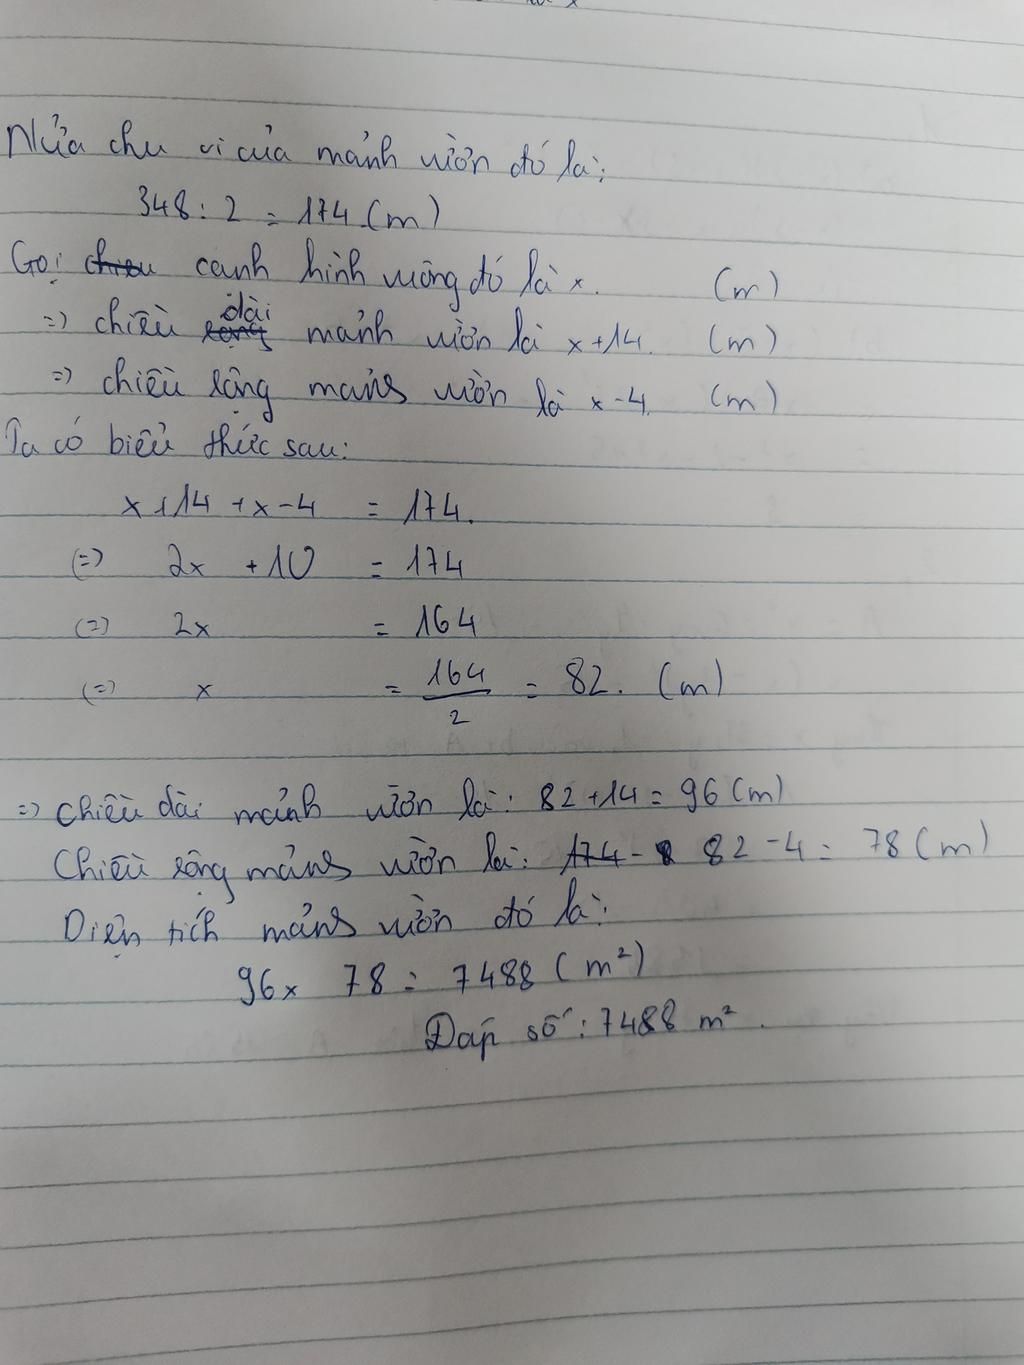 Nửa chu vi của mảnh vườn đó là:
348 : 2 = 174 (m)
Gọi cạnh hình vuông đó là x. (m)
=> chiều dài mảnh vườn là x+14. (m)
=> chiều rộng mảnh vườn là x-4. (m)
Ta có biểu thức sau:
x+14 +x-4 = 174.
(=) 2x +10 = 174
(=) 2x = 164
(=) x = 164/2 = 82. (m)
=> chiều dài mảnh vườn là: 82+14 = 96 (m)
Chiều rộng mảnh vườn là: 82 -4 = 78 (m)
Diện tích mảnh vườn đó là:
96 x 78 = 7488 (m²)
Đáp số: 7488 m².